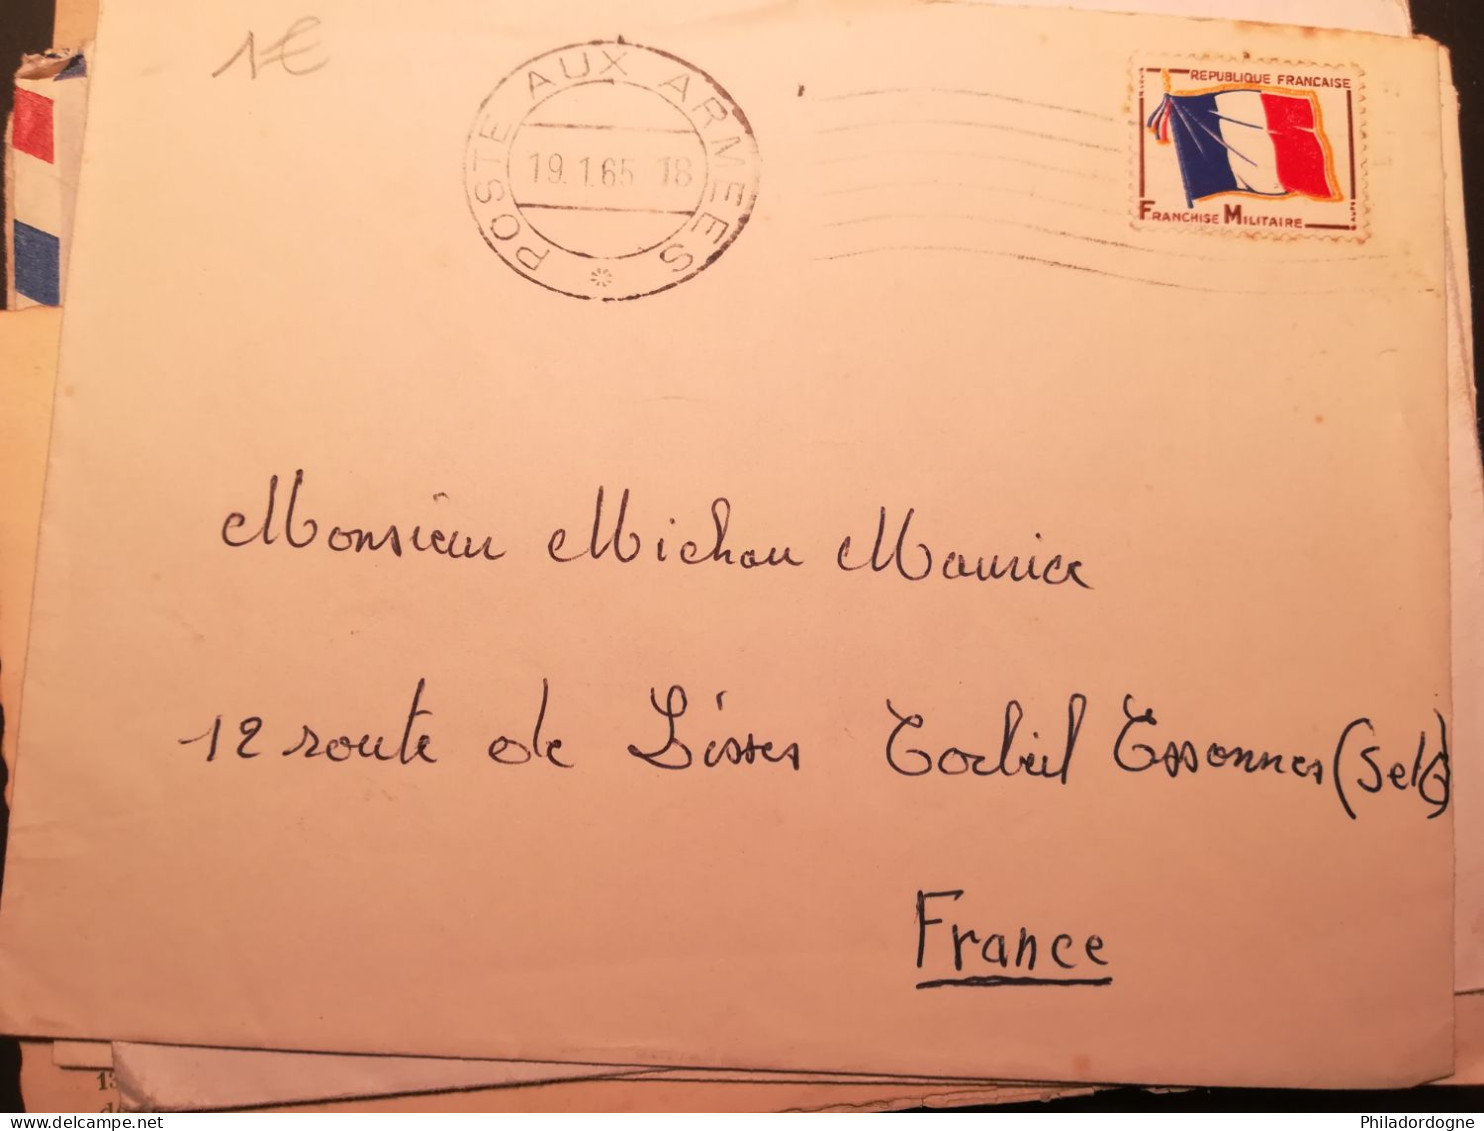 1€
POSTE AUX ARMEES
19.1.65 18
REPUBLIQUE FRANCAISE
FRANCHISE MILITAIRE
Monsieur Michou Maurice
12 route de Lisses Corbeil Essonnes (Set0)
France
13
de
Philadordogne